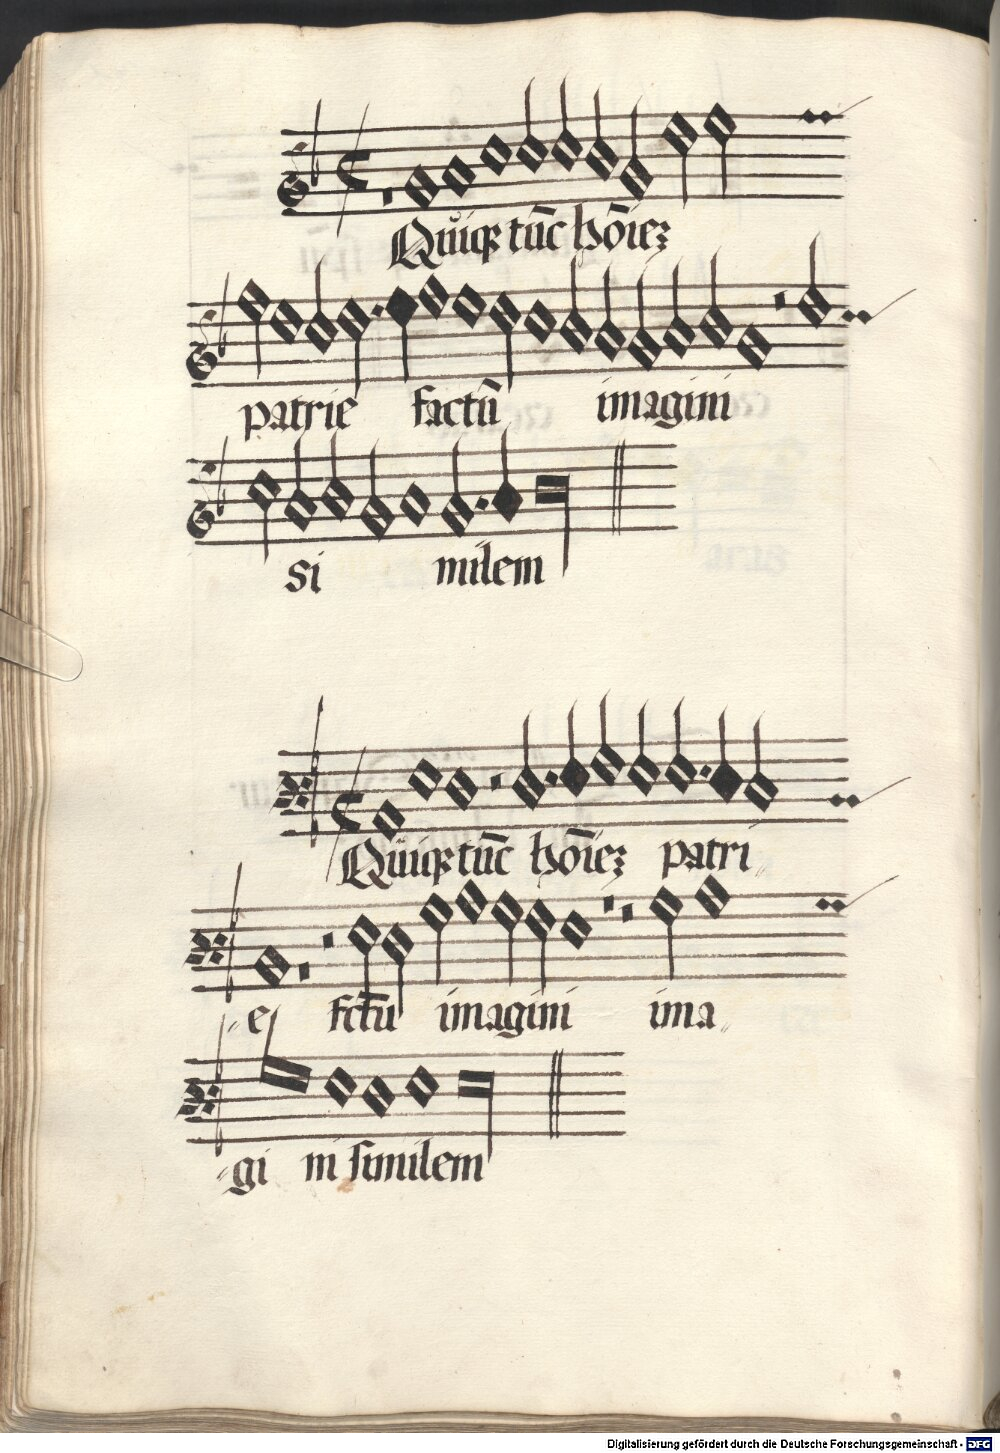 Quiqꝫ tūc hōiēꝫ
patrie factū imagini
si milem
Quiqꝫ tūc hōiēꝫ patri
e fctū imagini ima
gi ni similem
Digitalisierung gefördert durch die Deutsche Forschungsgemeinschaft - DFG